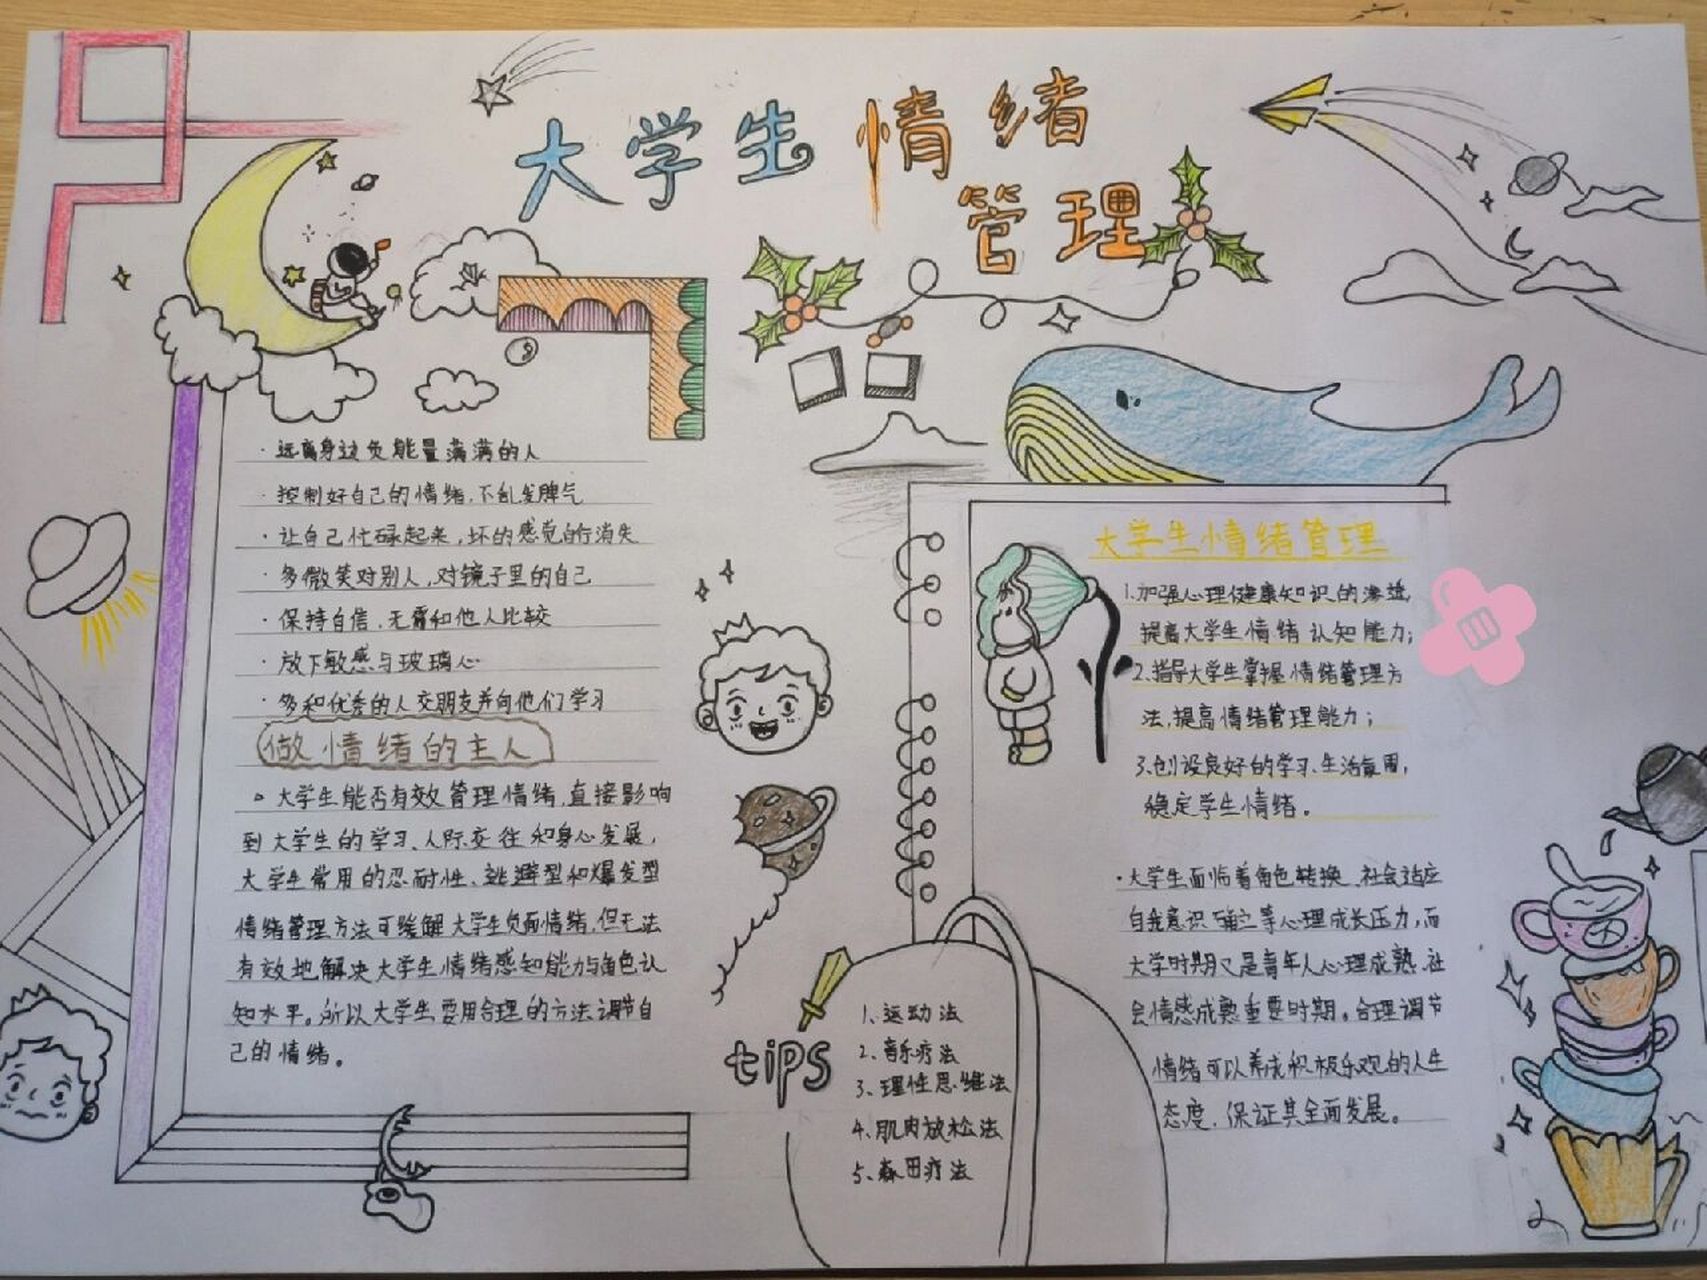 大学生情绪
管理
· 远离身边负能量满满的人
· 控制好自己的情绪,不乱发脾气
· 让自己忙碌起来,坏的感觉自行消失
· 多微笑对别人,对镜子里的自己
· 保持自信,无需和他人比较
· 放下敏感与玻璃心
· 多和优秀的人交朋友并向他们学习
做情绪的主人
。大学生能否有效管理情绪,直接影响
到大学生的学习、人际交往和身心发展,
大学生常用的忍耐性、逃避型和爆发型
情绪管理方法可缓解大学生负面情绪,但无法
有效地解决大学生情绪感知能力与角色认
知水平。所以大学生要用合理的方法调节自
己的情绪。
tips
1、运动法
2、音乐疗法
3、理性思维法
4、肌肉放松法
5、森田疗法
大学生情绪管理
1.加强心理健康知识的渗透,
提高大学生情绪认知能力;
2.指导大学生掌握情绪管理方
法,提高情绪管理能力;
3.创设良好的学习、生活氛围,
稳定学生情绪。
· 大学生面临着角色转换、社会适应
自我意识确立等心理成长压力,而
大学时期又是青年人心理成熟、社
会情感成熟重要时期。合理调节
情绪可以养成积极乐观的人生
态度,保证其全面发展。